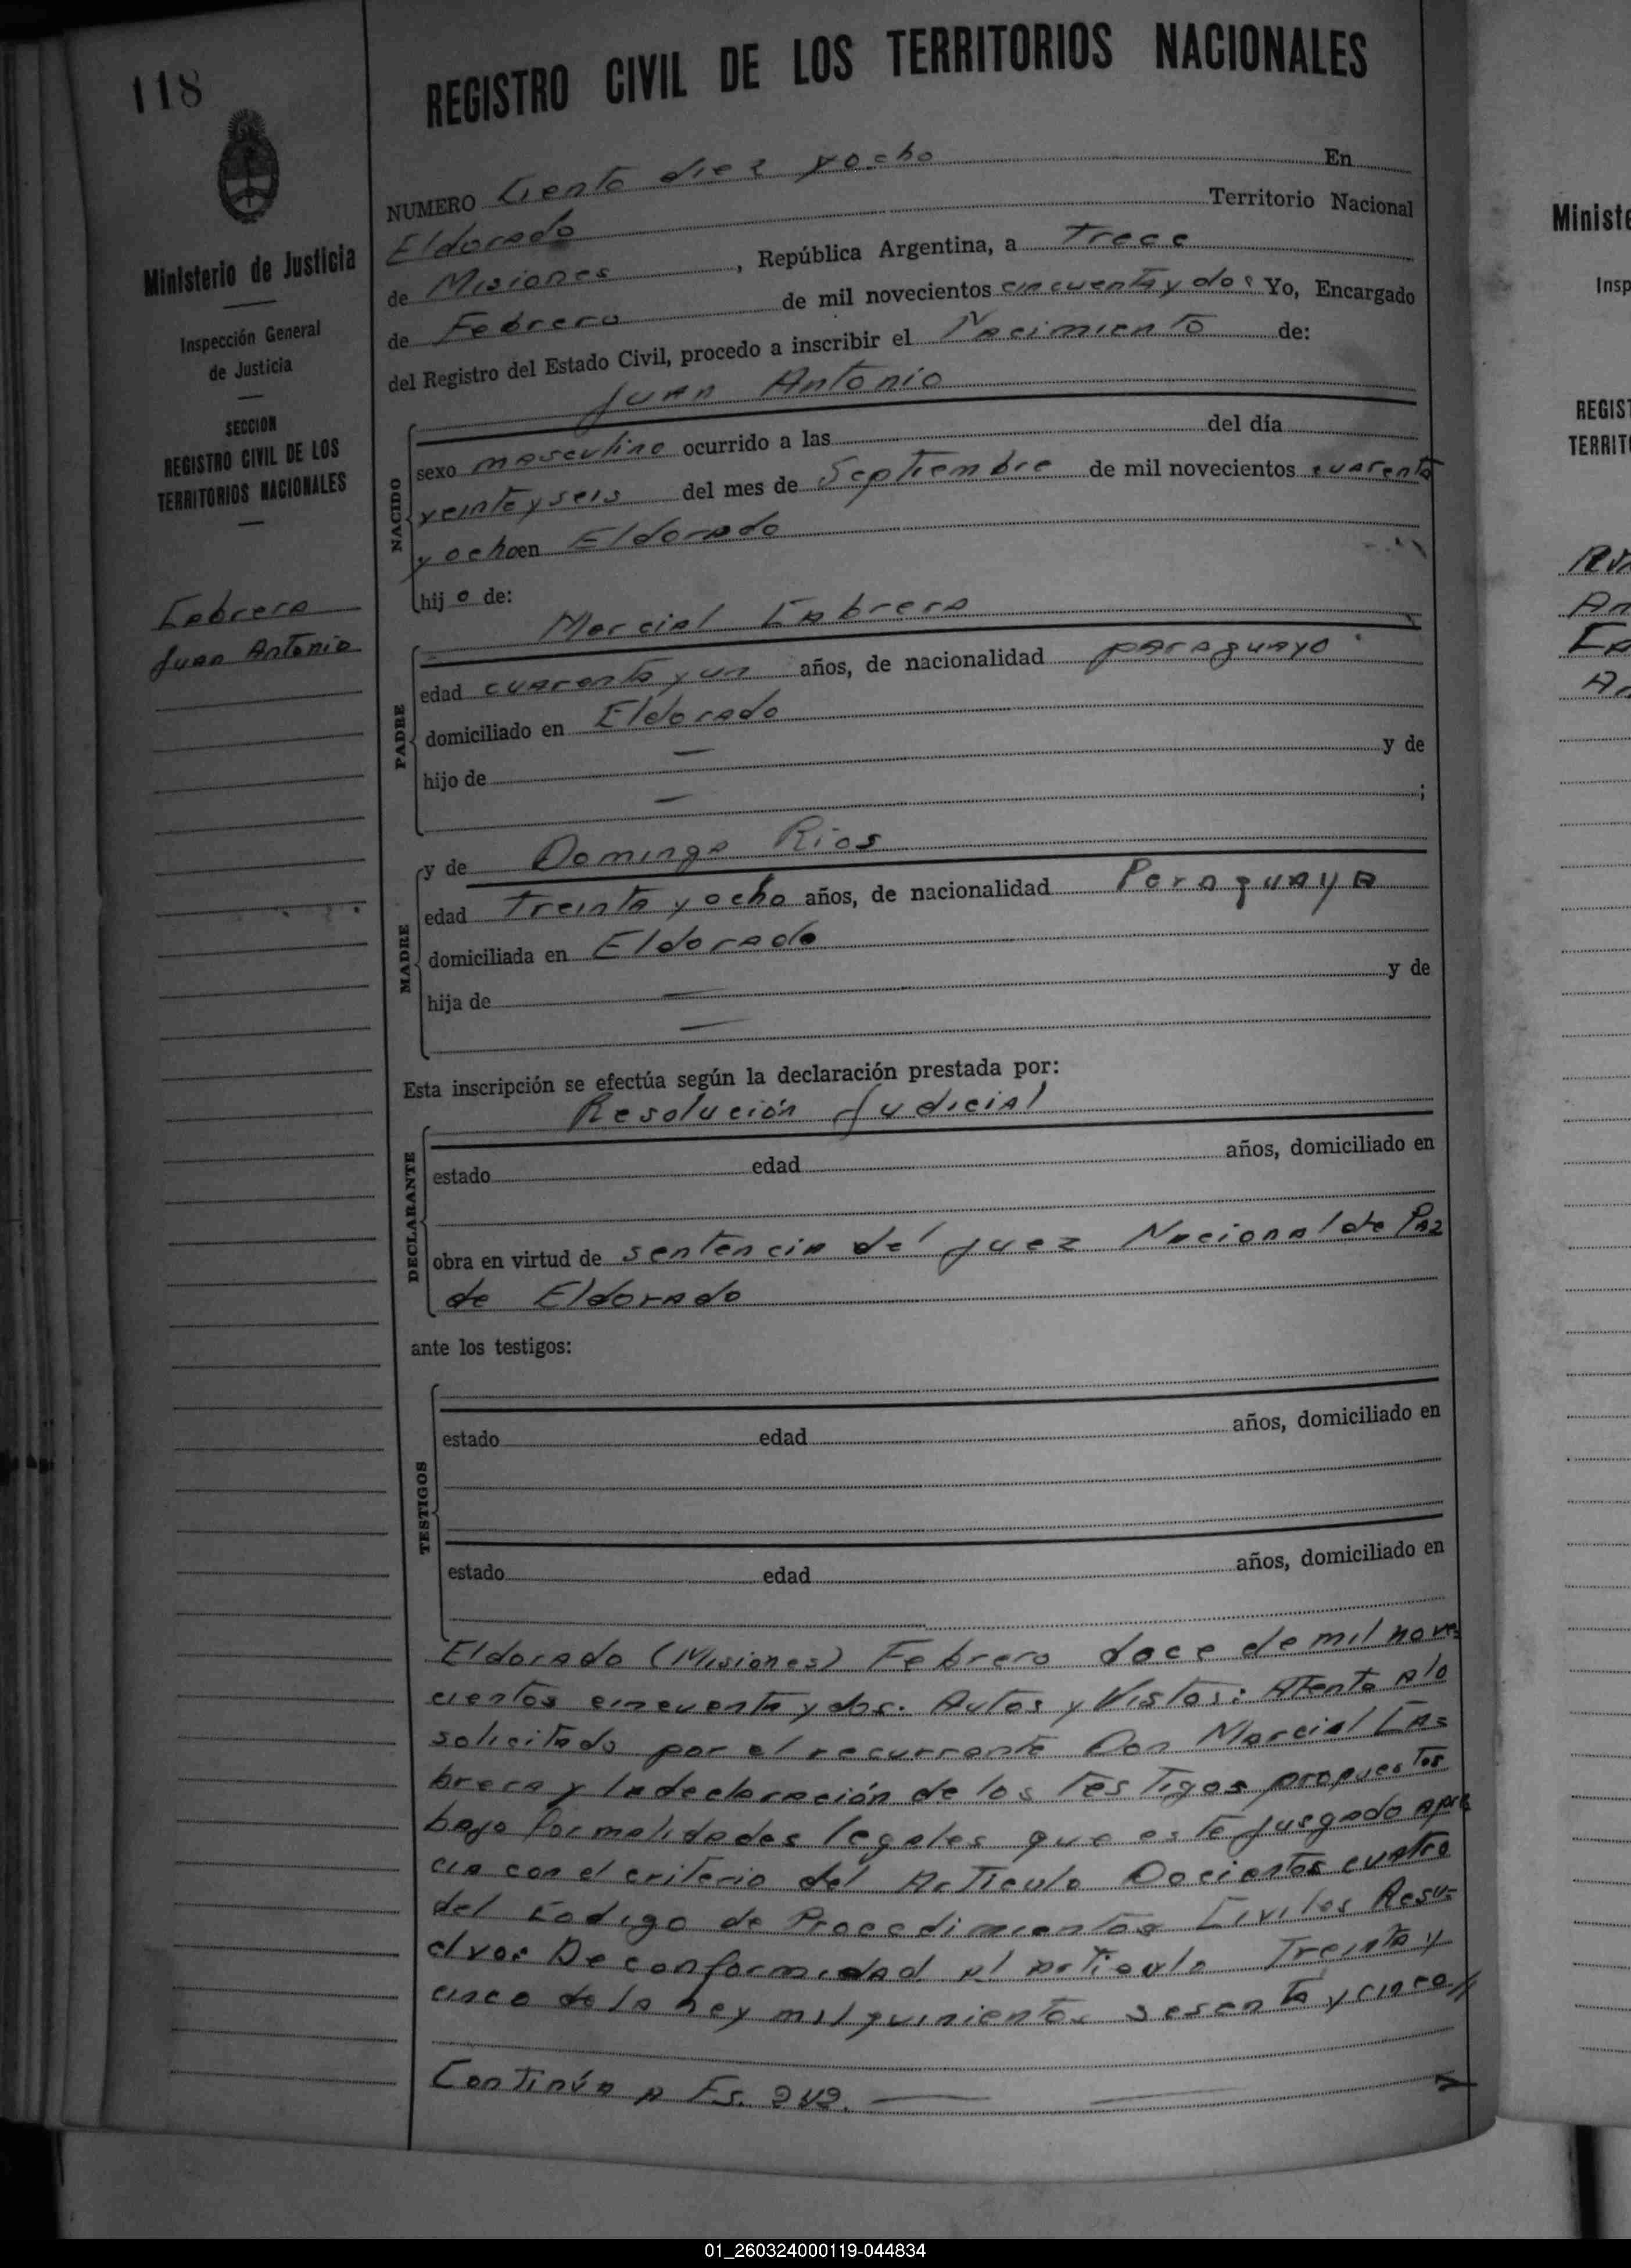 118
Ministerio de Justicia
Inspección General
de Justicia
SECCION
REGISTRO CIVIL DE LOS
TERRITORIOS NACIONALES
Cabrera
Juan Antonio
REGISTRO CIVIL DE LOS TERRITORIOS NACIONALES
NUMERO Ciento diez y ocho En
Eldorado Territorio Nacional
de Misiones, República Argentina, a Trece
de Febrero de mil novecientos cincuenta y dos Yo, Encargado
del Registro del Estado Civil, procedo a inscribir el Nacimiento de:
Juan Antonio
NACIDO
sexo masculino ocurrido a las del día
veinte y seis del mes de Septiembre de mil novecientos cuarenta
y ocho en Eldorado
hijo de:
PADRE
Marcial Cabrera
edad cuarenta y un años, de nacionalidad paraguayo
domiciliado en Eldorado
hijo de — y de
— ;
MADRE
y de Dominga Rios
edad treinta y ocho años, de nacionalidad Paraguaya
domiciliada en Eldorado
hija de — y de
—
Esta inscripción se efectúa según la declaración prestada por:
DECLARANTE
Resolución Judicial
estado edad años, domiciliado en
obra en virtud de sentencia del Juez Nacional de Paz
de Eldorado
ante los testigos:
TESTIGOS
estado edad años, domiciliado en
estado edad años, domiciliado en
Eldorado (Misiones) Febrero doce de mil nove
cientos cincuenta y dos. Autos y Vistos: Atento a lo
solicitado por el recurrente Don Marcial Ca=
brera y la declaración de los Testigos propuestos
bajo formalidades legales que este Jusgado apre
cia con el criterio del Articulo Docientos cuatro
del Codigo de Procedimientos Civiles Resu=
elvo: De conformidad al articulo Treinta y
cinco de la ley mil quinientos sesenta y cinco//
Continúa a Fs. 242. —
Ministe
Insp
REGIST
TERRIT
01_260324000119-044834